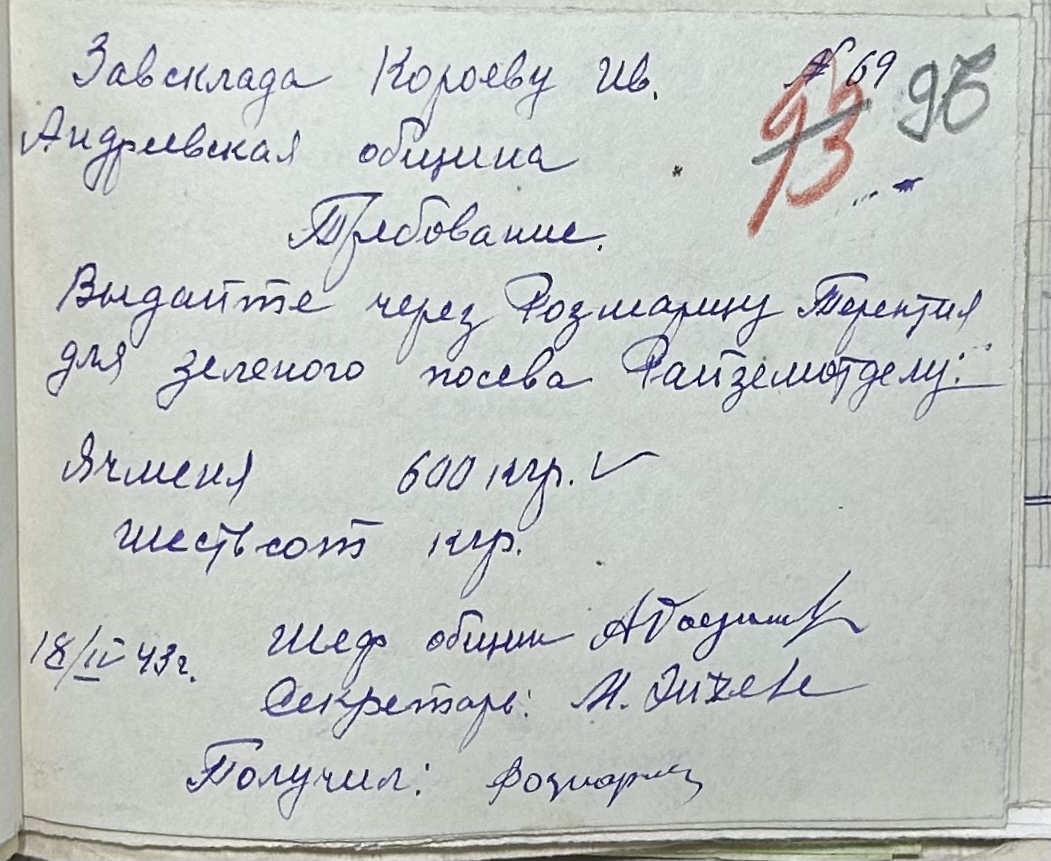 Завсклада Короеву Ив. № 69
93 96
Андреевская община
Требование.
Выдайте через Розмарицу Терентия
для зеленого посева Райземотделу:
Ячменя 600 кгр.
шестьсот кгр.
18/IV 43 г. Шеф общины
Секретарь: М.
Получил: Розмариц